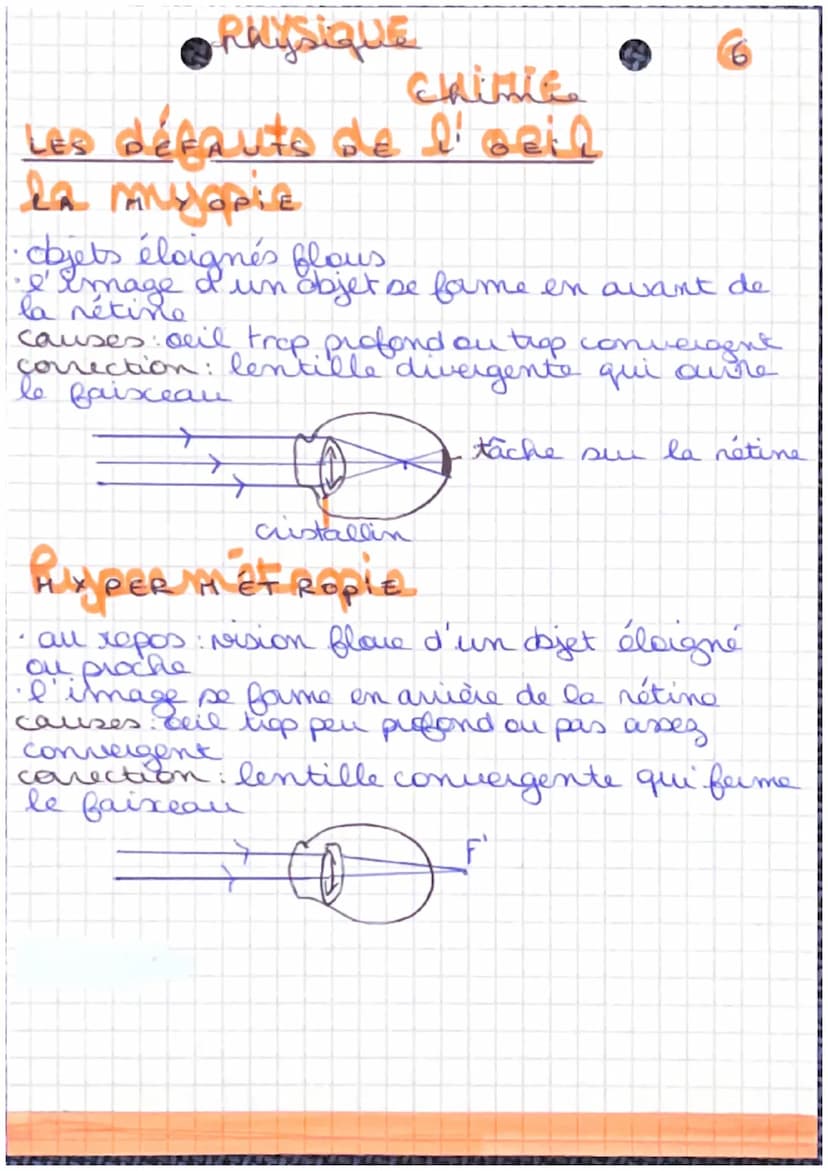 Physique
6
Chimie
LES DÉFAUTS DE L'OEIL
LA MYOPIE
· objets éloignés flous
· l'image d'un objet se forme en avant de
la rétine
causes : oeil trop profond ou trop convergent
correction : lentille divergente qui ouvre
le faisceau
tâche sur la rétine
cristallin
HYPERMÉTROPIE
· au repos : vision floue d'un objet éloigné
ou proche
· l'image se forme en arrière de la rétine
causes : oeil trop peu profond ou pas assez
convergent
correction : lentille convergente qui ferme
le faixeau
F'